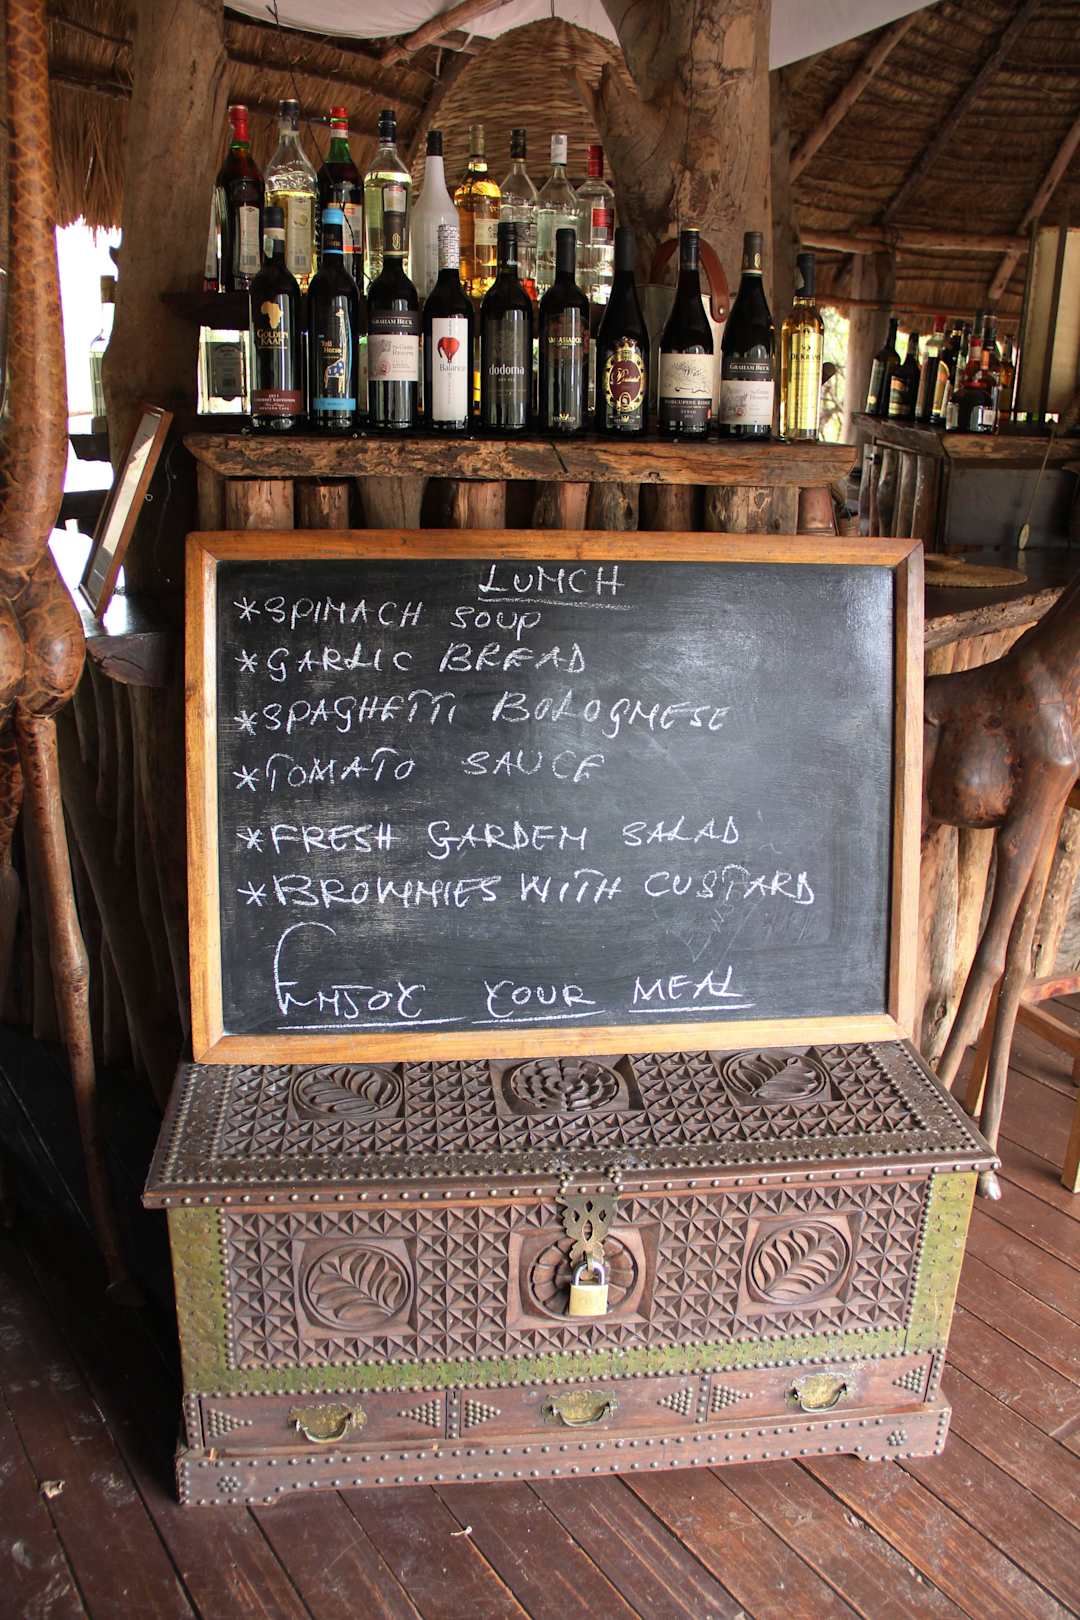 GOLDEN KAAN
CABERNET SAUVIGNON
GRAHAM BECK
Balance
dodoma
PORCUPINE RIDGE
GRAHAM BECK
LUNCH
*SPINACH SOUP
*GARLIC BREAD
*SPAGHETTI BOLOGNESE
*TOMATO SAUCE
*FRESH GARDEN SALAD
*BROWNNIES WITH CUSTARD
ENJOY YOUR MEAL